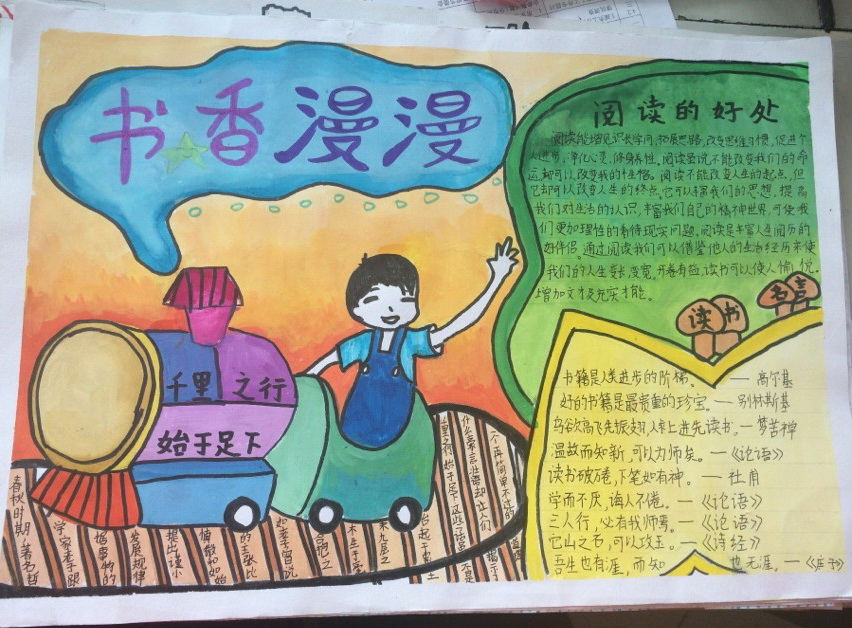 书香漫漫
千里之行
始于足下
阅读的好处
阅读能增见识长学问,拓展思路,改变思维习惯,促进个
人进步,净化心灵,修身养性。阅读虽说不能改变我们的命
运,却可以改变我的性格。阅读不能改变人生的起点,但
它却可以改变人生的终点。它可以丰富我们的思想,提高
我们对生活的认识,丰富我们自己的精神世界,可使我
们更加理性的看待现实问题。阅读是丰富人生阅历的
好伴侣。通过阅读我们可以借鉴他人的生活经历来使
我们的人生变长变宽。开卷有益,读书可以使人愉悦。
增加文才及充实才能。
读书
名言
书籍是人类进步的阶梯。——高尔基
好的书籍是最贵重的珍宝。——别林斯基
鸟欲高飞先振翅,人求上进先读书。—梦苦禅
温故而知新,可以为师矣。—《论语》
读书破万卷,下笔如有神。—杜甫
学而不厌,诲人不倦。—《论语》
三人行,必有我师焉。—《论语》
它山之石,可以攻玉。—《诗经》
吾生也有涯,而知也无涯。—《庄子》
春秋时期,著名哲
学家老子
事物的
发展规律
提出谨小
慎微和如始
的主张比
如老子曾说
合抱之
木生于毫
末九层之
台起于累土
千里之行始于足下这些